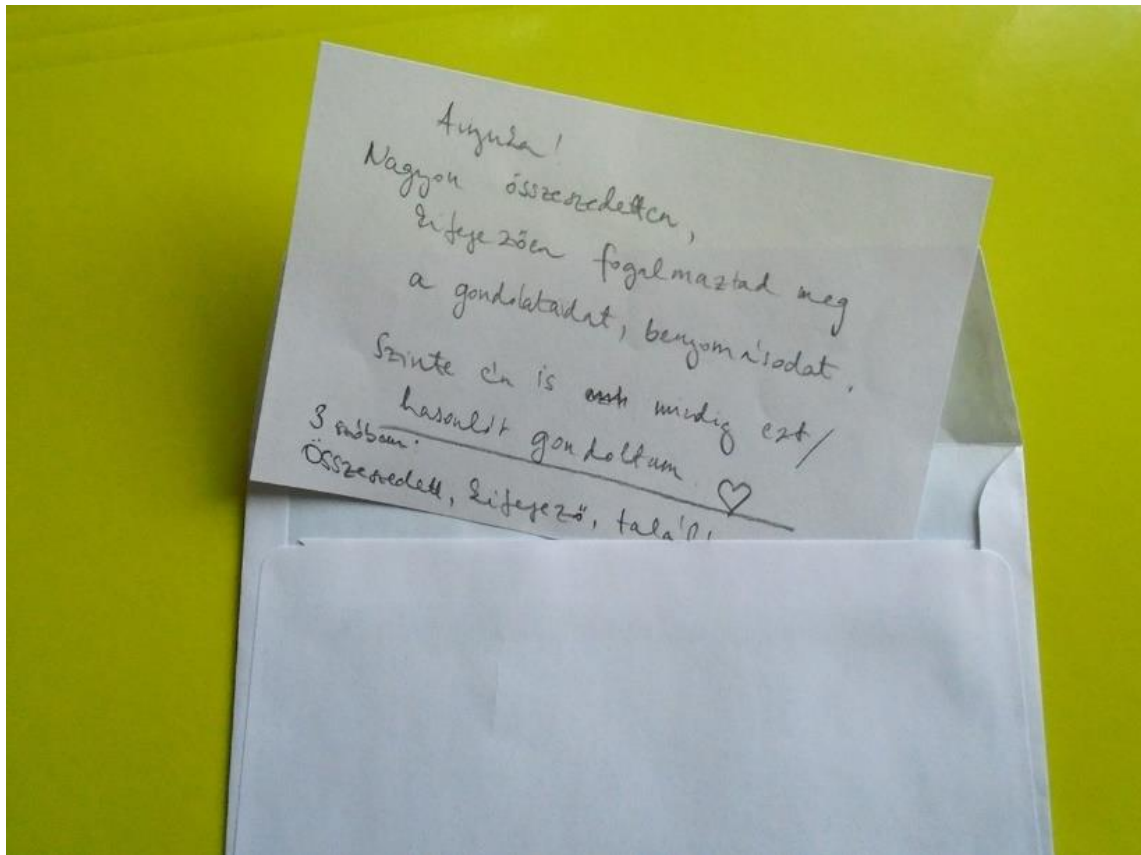 Anyuka!
Nagyon összeszedetten,
kifejezően fogalmaztad meg
a gondolataidat, benyomásodat.
Szinte én is mindig ezt/
hasonlót gondoltam ♡
3 szóban:
Összeszedett, kifejező, találó